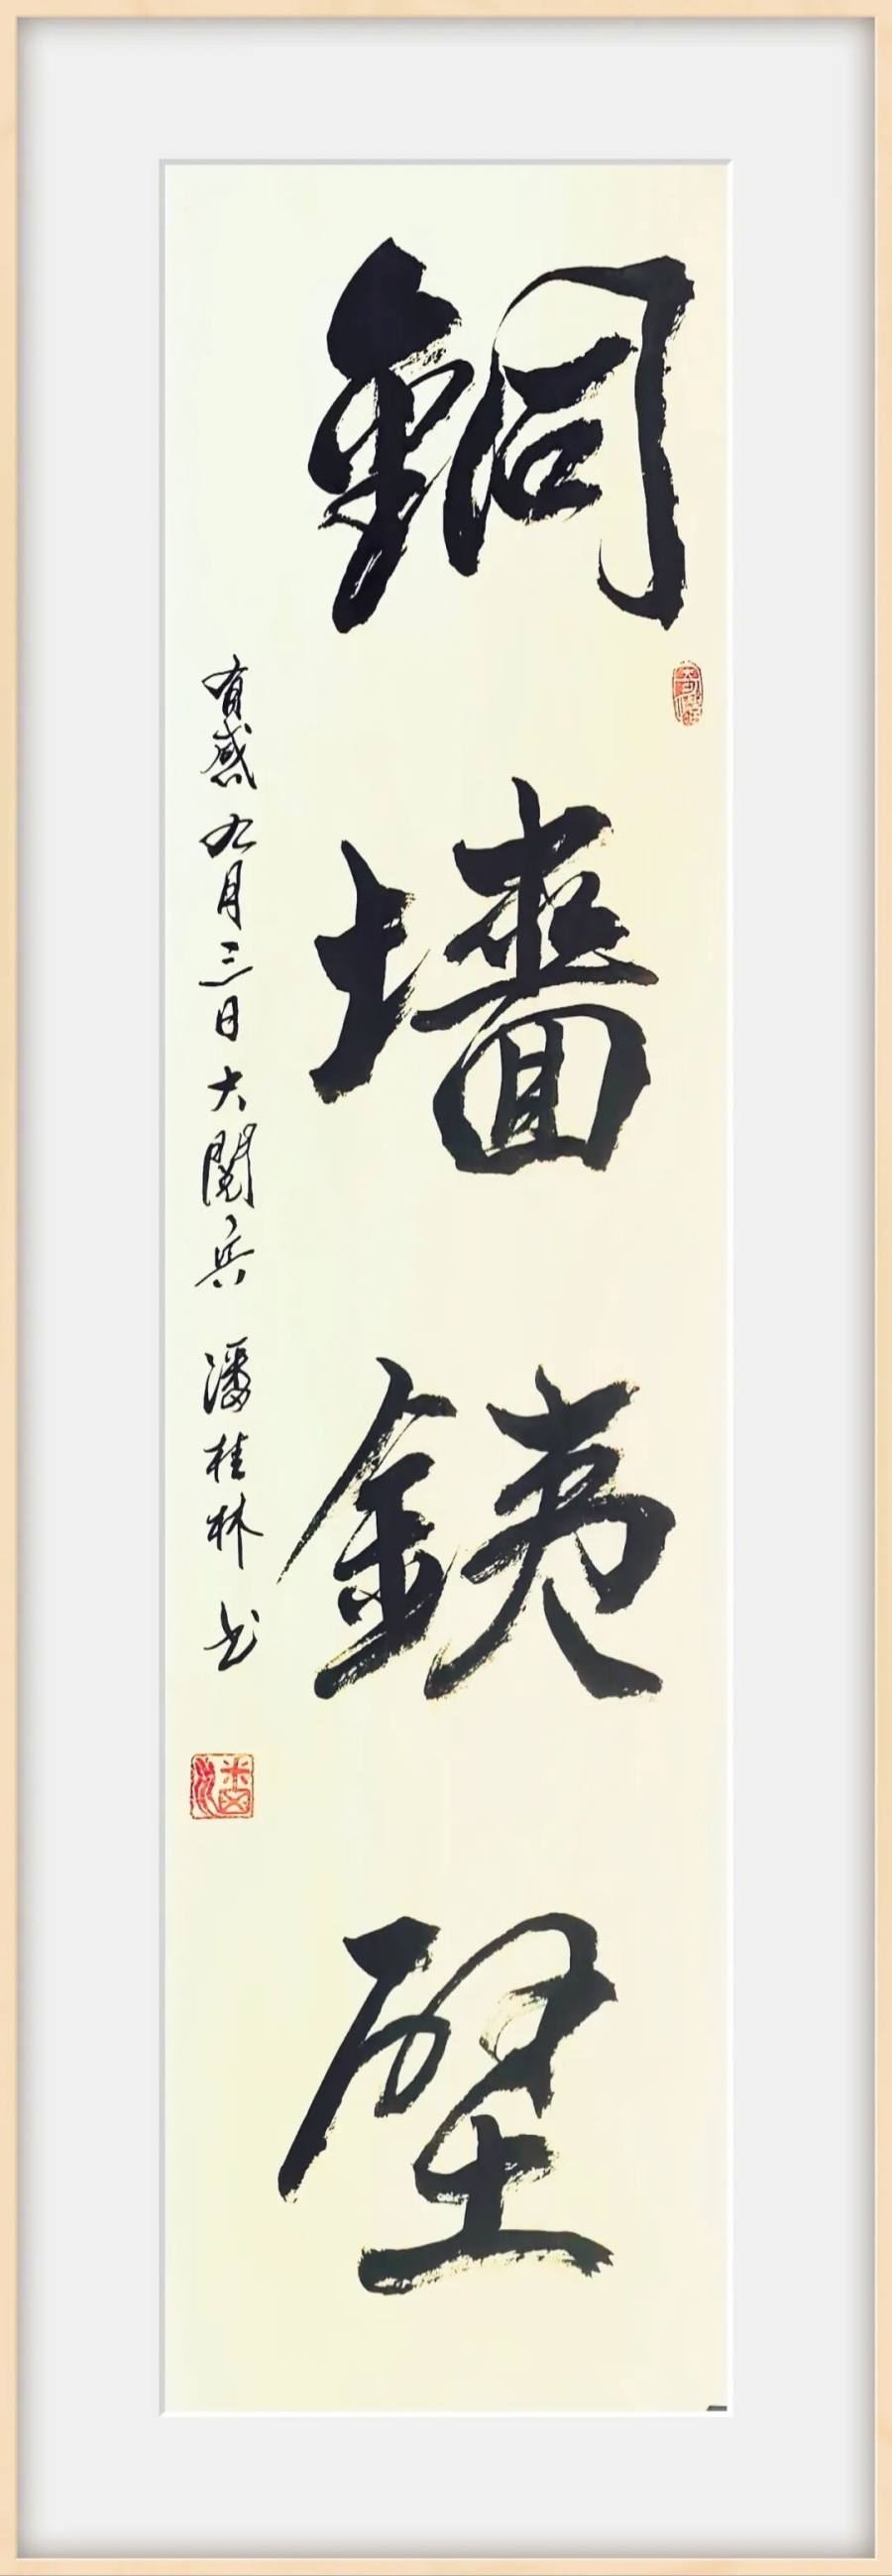 銅墙銕壁
有感九月三日大閱兵 潘桂林书
潘